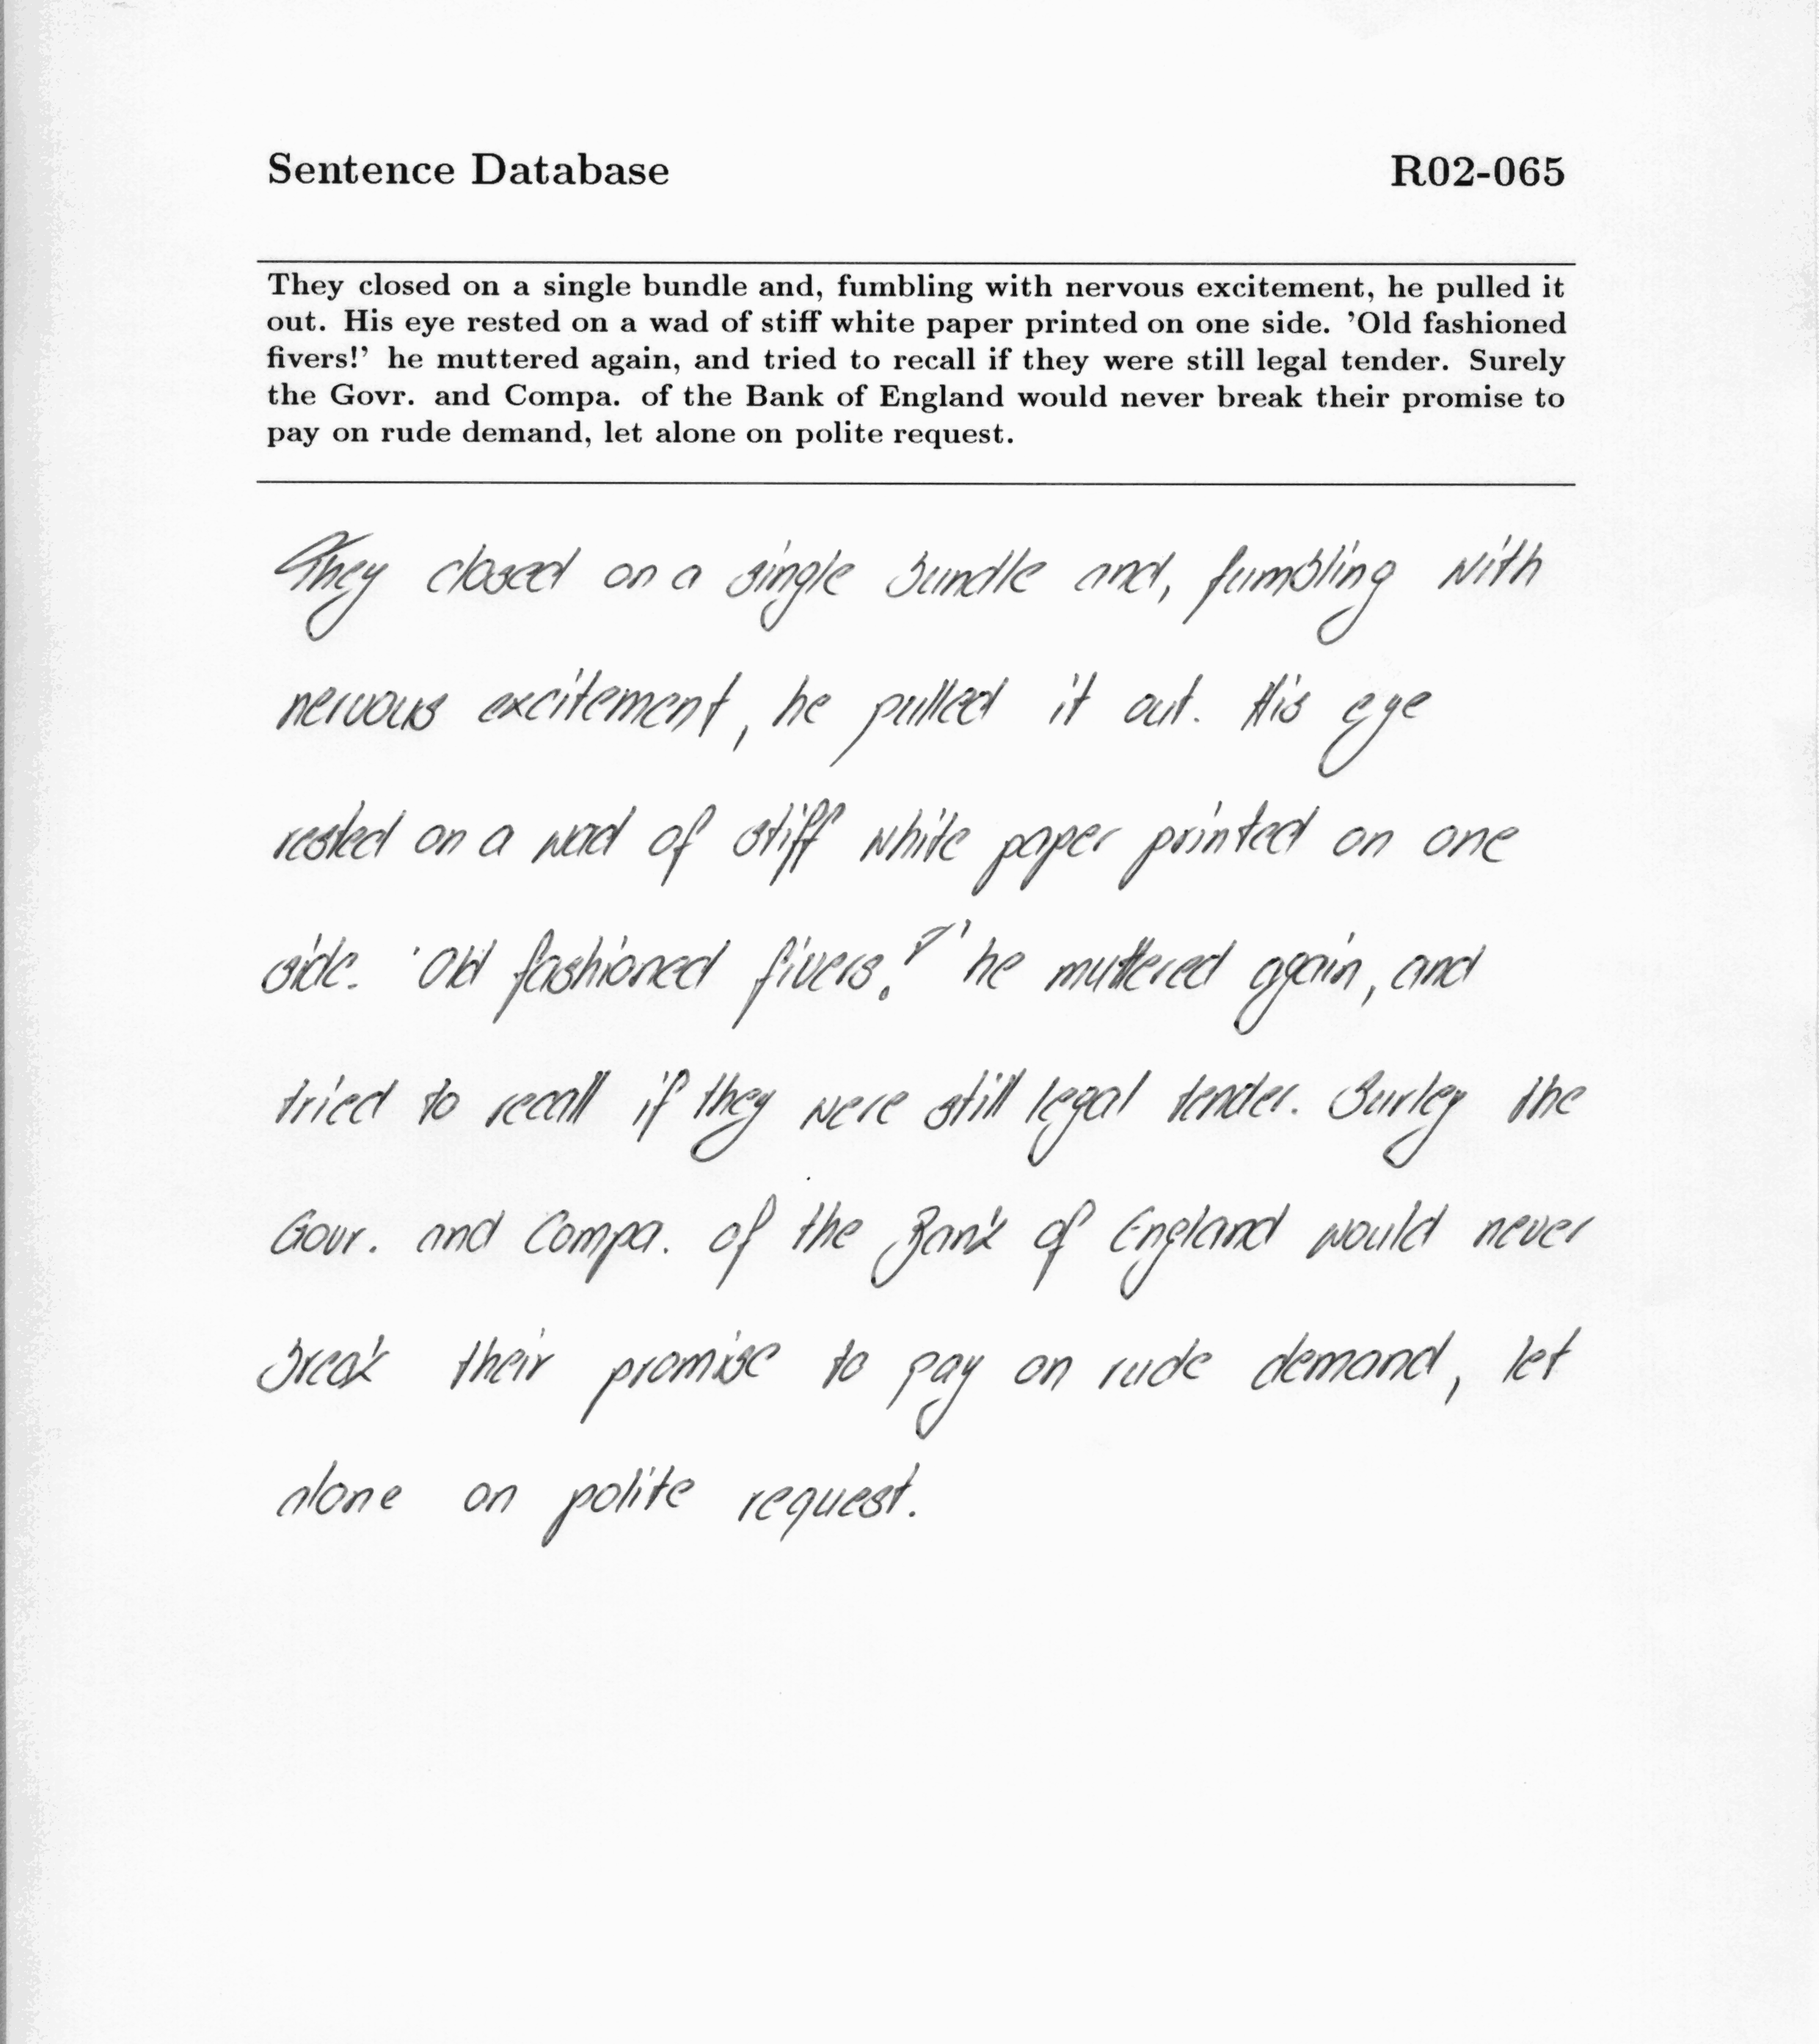 Sentence Database R02-065
They closed on a single bundle and, fumbling with nervous excitement, he pulled it
out. His eye rested on a wad of stiff white paper printed on one side. 'Old fashioned
fivers!' he muttered again, and tried to recall if they were still legal tender. Surely
the Govr. and Compa. of the Bank of England would never break their promise to
pay on rude demand, let alone on polite request.
They closed on a single bundle and, fumbling with
nervous excitement, he pulled it out. His eye
rested on a wad of stiff white paper printed on one
side. 'Old fashioned fivers!' he muttered again, and
tried to recall if they were still legal tender. Surley the
Govr. and Compa. of the Bank of England would never
break their promise to pay on rude demand, let
alone on polite request.